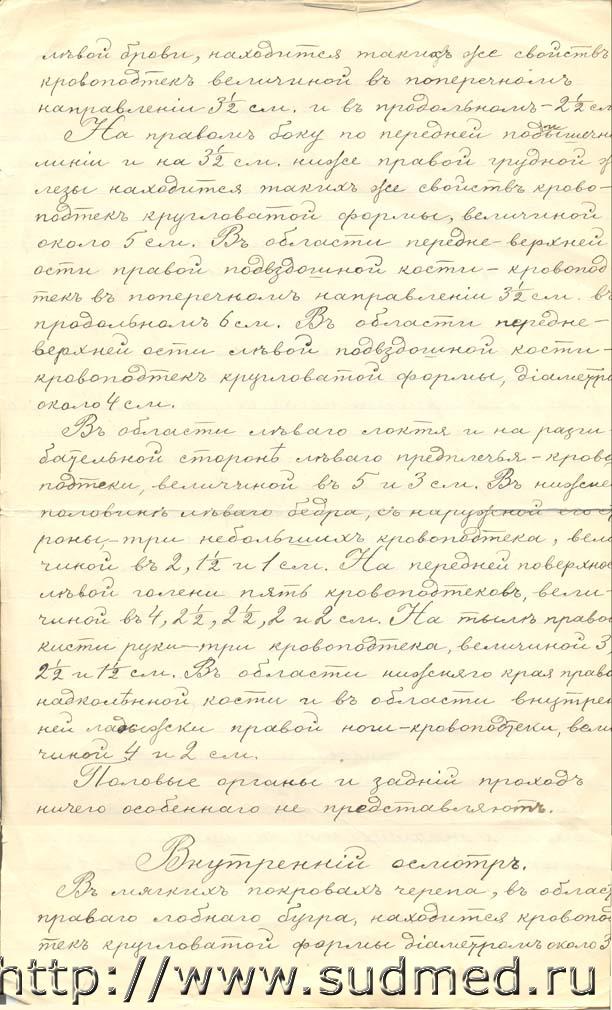 лѣвой брови, находится такихъ же свойствъ
кровоподтекъ величиной въ поперечномъ
направленіи 3½ см. и въ продольномъ – 2½ см
На правомъ боку по передней подмышечн
линіи и на 3½ см. ниже правой грудной ж
лезы находится такихъ же свойствъ крово-
подтекъ кругловатой формы, величиной
около 5 см. Въ области передне-верхней
ости правой подвздошной кости – кровопод
текъ въ поперечномъ направленіи 3½ см. въ
продольномъ 6 см. Въ области передне-
верхней ости лѣвой подвздошной кости –
кровоподтекъ кругловатой формы, діаметр
около 4 см.
Въ области лѣваго локтя и на разги-
бательной сторонѣ лѣваго предплечья – крово
подтеки, величиной въ 5 и 3 см. Въ нижне
половинѣ лѣваго бедра, съ наружной его с
роны – три небольшихъ кровоподтека, вели
чиной въ 2, 1½ и 1 см. На передней поверхнос
лѣвой голени пять кровоподтековъ, вели-
чиной въ 4, 2½, 2½, 2 и 2 см. На тылѣ право
кисти руки – три кровоподтека, величиной 3,
2½ и 1½ см. Въ области нижняго края право
надколѣнной кости и въ области внутрен
ней ладыжски правой ноги – кровоподтеки, вели
чиной 4 и 2 см.
Половые органы и задній проходъ
ничего особеннаго не представляютъ.
Внутренній осмотръ.
Въ мягкихъ покровахъ черепа, въ област
праваго лобнаго бугра, находится кровопод
текъ кругловатой формы діаметромъ около 3
http://www.sudmed.ru